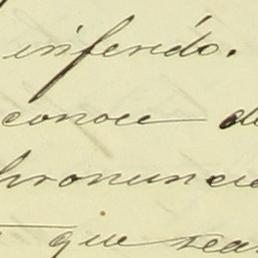 inferido.
conoce de
pronuncia
que sea